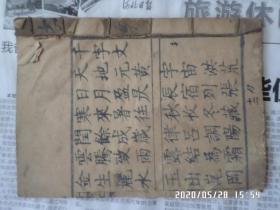 千字文
天地元黄 宇宙洪荒
日月盈昃 辰宿列張
寒來暑往 秋收冬藏
閏餘成歲 律呂調陽
雲騰致雨 露結為霜
金生麗水 玉出崑岡
旅游休
2020/05/28 15:34